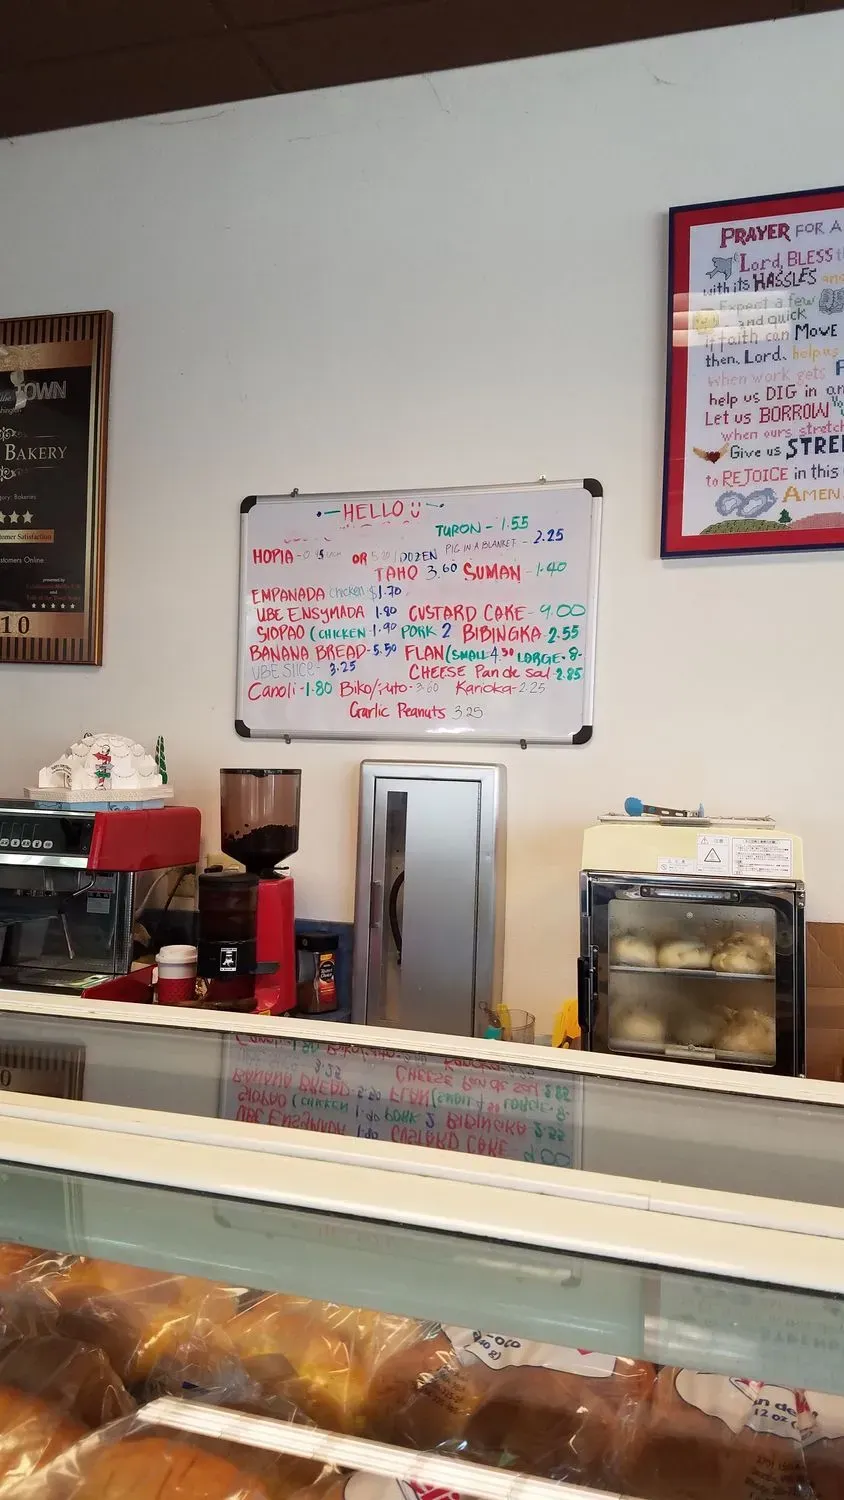 TOWN
BAKERY
Category: Bakeries
Customer Satisfaction
Customers Online
presented by
10
PRAYER FOR A
Lord, BLESS
with its HASSLES
Expect a few
and quick
if faith can Move
then, Lord, help us
when work gets
help us DIG in
Let us BORROW
when ours stretch
Give us
to REJOICE in this
AMEN
HELLO
TURON - 1.55
HOPIA - OR DOZEN PIG IN A BLANKET - 2.25
TAHO 3.60 SUMAN - 1.40
EMPANADA chicken $1.70
UBE ENSYMADA 1.80 CUSTARD CAKE - 9.00
SIOPAO (CHICKEN 1.90 PORK 2 BIBINGKA - 2.55
BANANA BREAD - 5.50 FLAN (SMALL 4.50 LARGE - 8-
UBE SLICE - 3.25 CHEESE Pan de sal - 2.85
Canoli - 1.80 Biko/Puto - 3.60 Karioka - 2.25
Garlic Peanuts 3.25
12 oz